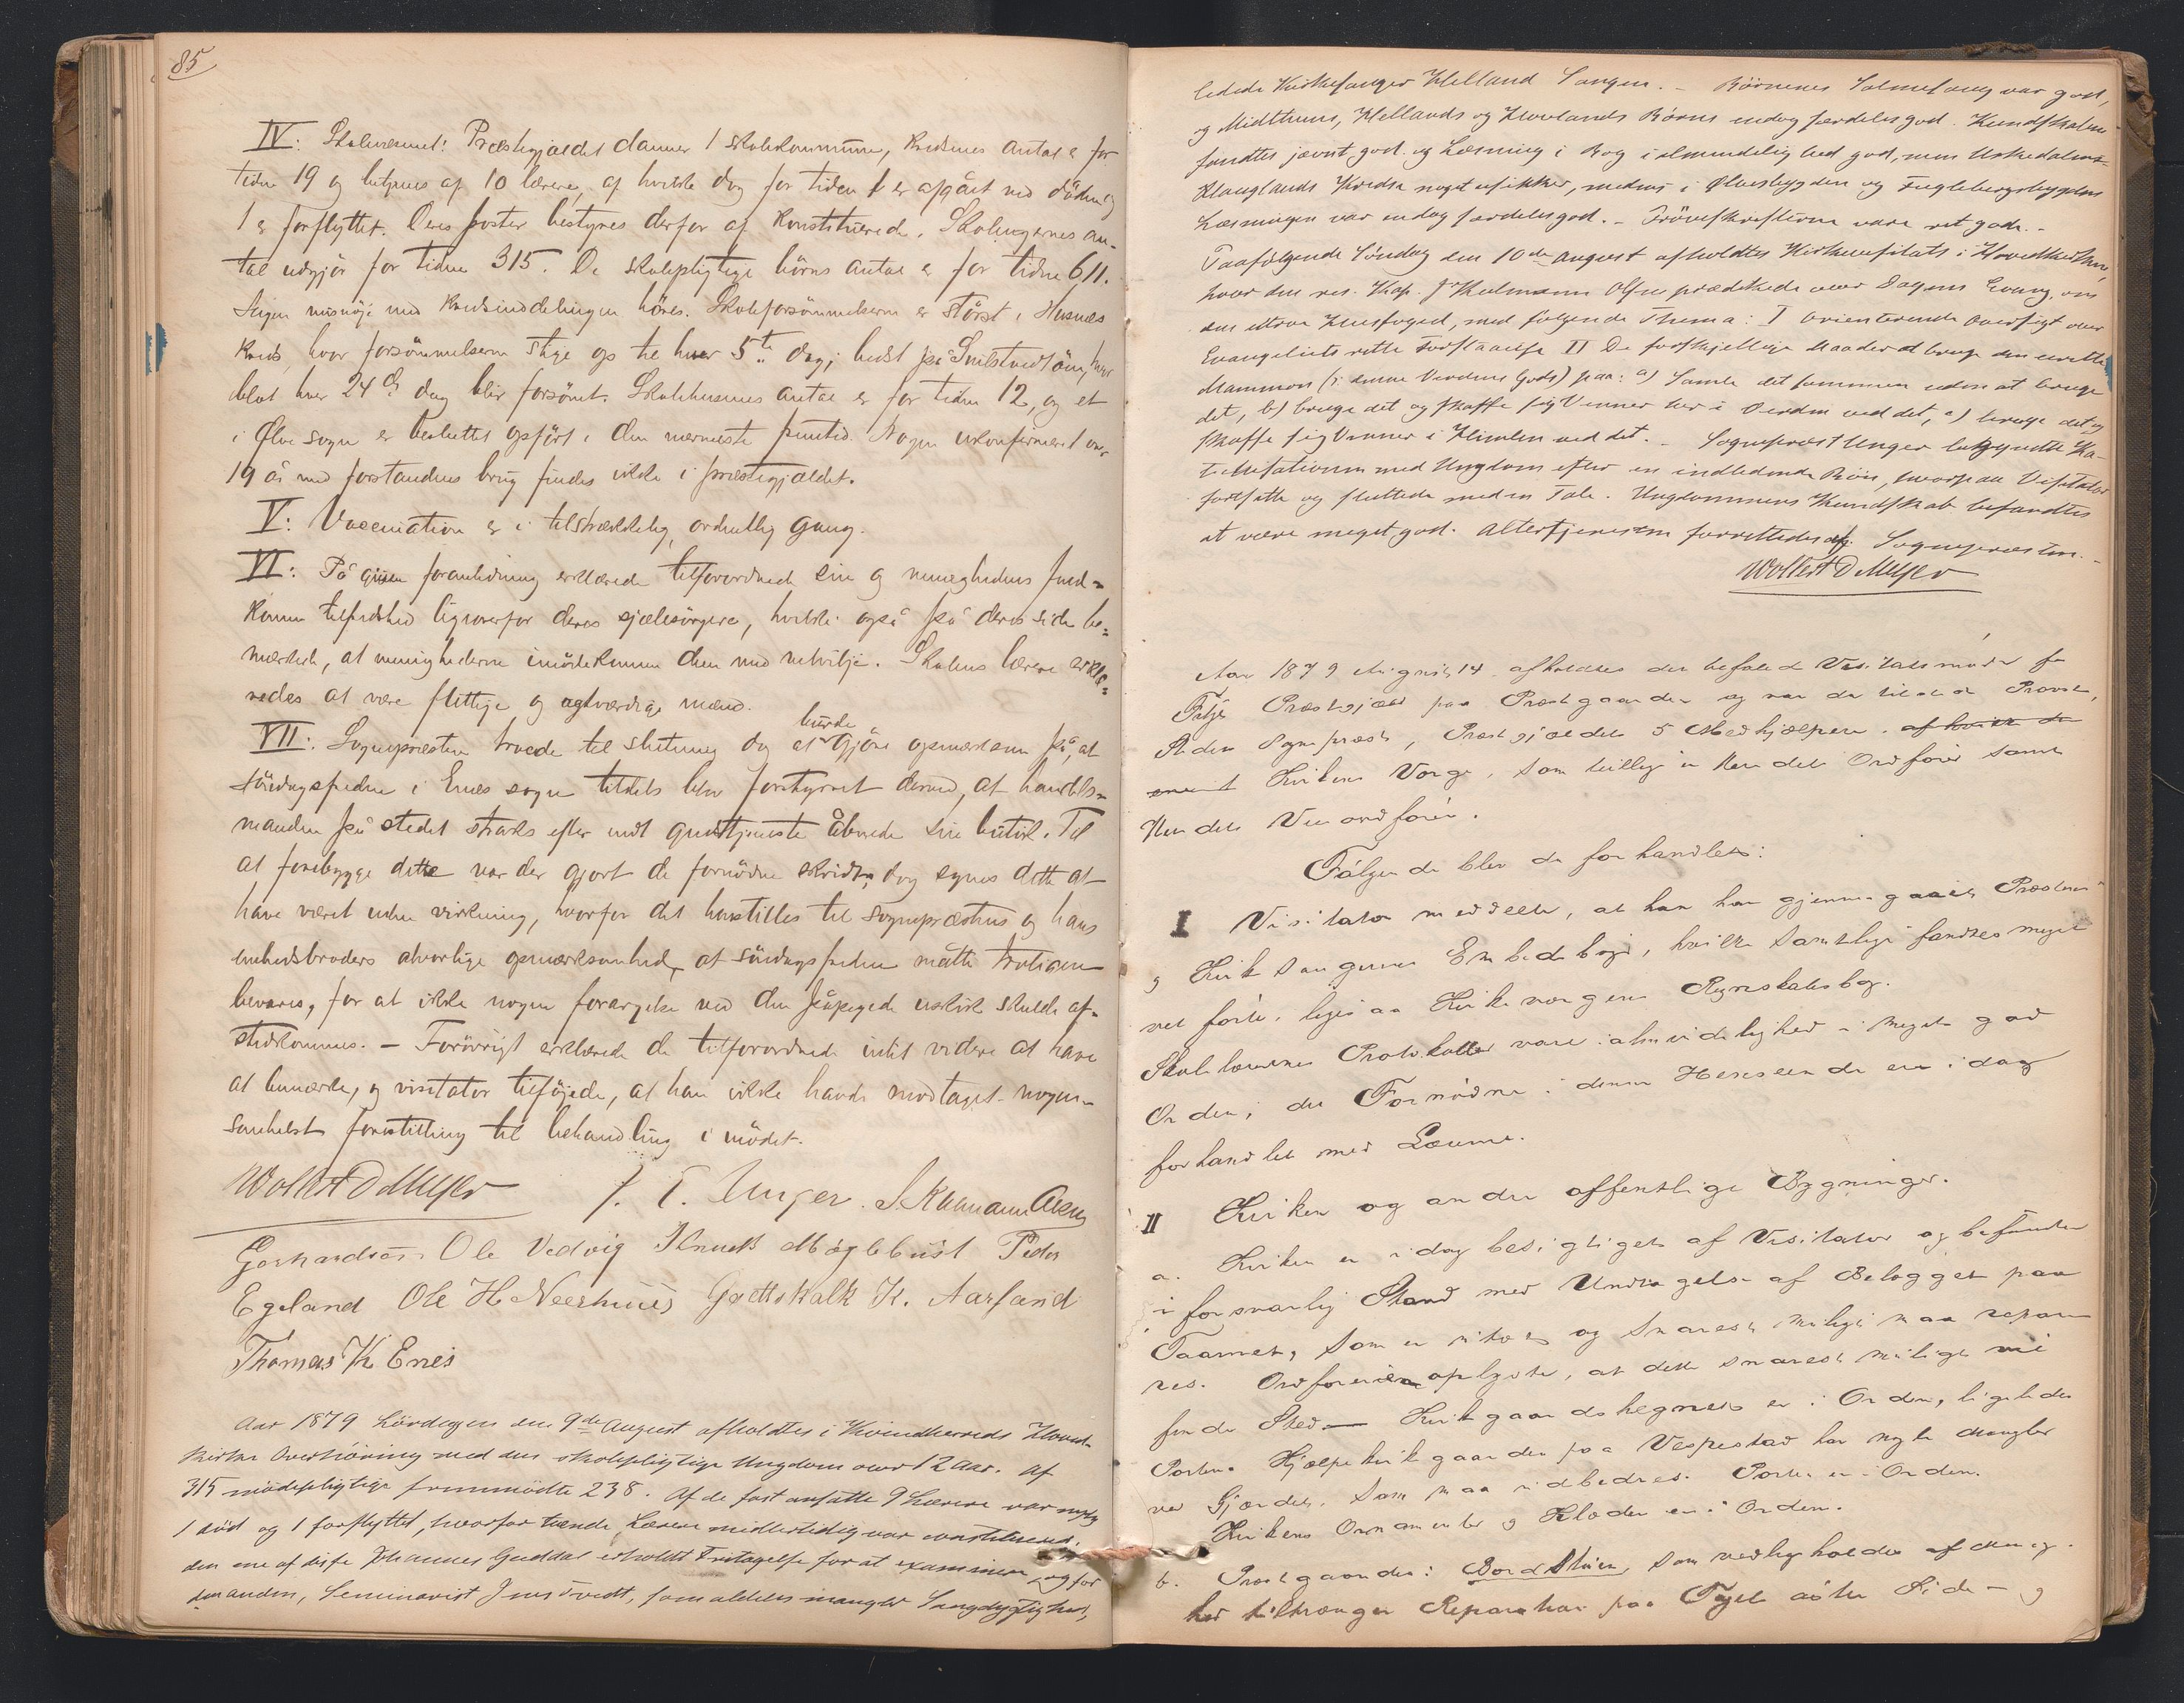 85
IV: Skolevæsenet: Præstegjældet danner 1 skolekommune, kredsenes antal er for
tiden 19 og betjenes af 10 lærere, af hvilke dog for tiden 1 er afgået ved döden og
1 er forflyttet. Deres poster bestyres derfor af konstituerede. Skolingernes an-
tal udgjör for tiden 315. De skolepligtige börns antal er for tiden 611.
Ingen misnöje med kredsinddelingen höres. Skoleforsömmelserne er störst i Husnæs
kreds, hvor forsömmelserne stige op til hver 5te dag; bedst på Snilstvedtöen, hvor
blot hver 24de dag blir forsömt. Skolehusenes antal er for tiden 12, og et
i Ølve sogn er besluttet opfört i den nærmeste fremtid. Nogen ukonfirmeret over
19 år med forstandens brug findes ikke i præstegjældet.
V: Vaccination er i tilstrækkelig, ordentlig gang.
VI: På given foranledning erklærede tilforordnede sin og menighedens fuld-
komne tilfredshed ligeoverfor deres sjælesörgere, hvilke også på deres side be-
mærkede, at menighederne imödekommer dem med velvilje. Skolens lærere erklæ-
redes at være flittige og agtværdige mænd.
VII: Sognepræsten troede til slutning dog at burde gjöre opmærksom på, at
söndagsfreden i Enæs sogn tildels blev forstyrret derved, at handels-
manden på stedet straks efter endt gudstjeneste åbnede sin butik. Til
at forebygge dette var der gjort de fornödne skridt, dog synes dette at
have været uden virkning, hvorfor det henstilles til sognepræstens og hans
embedsbroders alvorlige opmærksomhed, at söndagsfreden måtte trolig
bevares, for at ikke nogen forargelse ved den påpegede uskik skulde af-
stedkommes. - Forövrigt erklærede de tilforordnede intet videre at have
at bemærke, og visitator tilföjede, at han ikke havde modtaget nogen-
somhelst forestilling til behandling i mödet.
Wollert D Meyer J. T. Unger. J. Kulmann Olsen
Gerhardsen Ole Vedvig Knud Møglebust Peder
Egeland Ole H Neerhuus Gottskalk K. Aarsand
Thomas K Enes
Aar 1879 Lördagen den 9de August afholdtes i Kvindherreds Hoved-
kirke Overhöring med den skolepligtige Ungdom over 12 Aar. Af
315 mödepligtige fremmödte 238. Af de fast ansatte 9 Lærere var nylig
1 död og 1 forflyttet, hvorfor tvende Lærere midlertidig var constitueret.
den ene af disse Johannes Guddal erholdt Fritagelse for at examinere og for
den anden, Seminarist Jens Tvedt, som aldeles mangler Sangdygtighed,
ledede Kirkesanger Helland Sangen. - Börnenes Salmesang var god,
og Midttuns, Hellands og Hovlands Börns endog særdeles god. Kundskaberne
fandtes jævnt god og Læsning i Bog i almindelighed god, men Uskedalens
Hauglands Kredse noget usikker, medens i Ølvesbygden og Fuglebergsbygdens
Læsningen var endog særdeles god. - Pröveskrifterne vare ret gode. -
Paafølgende Søndag den 10de August afholdtes Kirkevisitats i Hovedkirken,
hvor den res. Kap. J. Kulmann Olsen prædikede over Dagens Evang. om
den utroe Huusfoged, med følgende Thema: I Orienterende Oversigt over
Evangeliets rette Forstaaelse II De forskjellige Maader at bruge den urette
Mammon (: denne Verdens Gods) paa: a) Samle det sammen uden at bruge
det, b) bruge det og skaffe sig Venner her i Verden ved det, c) bruge det og
skaffe sig Venner i Himlen ved det. - Sognepræst Unger begyndte Ka-
techisationen med Ungdom efter en indledende Bön, hvorpaa Visitator
fortsatte og sluttede med en Tale. Ungdommens Kundskab befandtes
at være meget god. Altertjenesten forrettedes af Sognepræsten. -
Wollert D Meyer
Aar 1879 August 14 afholdtes det befalede Visitatsmøde for
Fitje Præstegjæld paa Præstegaarden og var da tilstede Provsten,
Stedets Sognepræst, Præstegjældets 5 Medhjælpere, af hvilke den
enest Kirkens Værge, som tillige er Herredets Ordfører samt
Herredets Viceordfører.
Følgende blev da forhandlet:
I Visitator meddelte, at han har gjennemgaaet Præstens
og Kirkesangerens Embedsbøger, hvilke samtlige fandtes meget
vel førte, ligesaa Kirkeværgens Regnskabsbog.
Skolelærernes Protokoller vare i almindelighed i meget god
Orden; det Fornødne i denne Henseende er i dag
forhandlet med Lærerne.
II Kirken og andre offentlige Bygninger.
a. Kirken er i dag besigtiget af Visitator og befunden
i forsvarlig Stand med Undtagelse af Belægget paa
Taarnet, som er utæt og snarest mulig maa repare-
res. Ordføreren oplyste, at dette snarest muligt vil
finde Sted — Kirkegaardshegnet er i Orden, ligeledes
Porten. Hjælpekirkegaarden paa Vespestad har nogle Mangler
ved Gjærdet, som maa udbedres. Porten er i Orden.
Kirkens Ornamenter og Klæder er i Orden.
b. Præstegaarden: Bordstuen, som vedligeholdes af Menig-
hed tiltrænger Reparation paa Taget østre Side - og